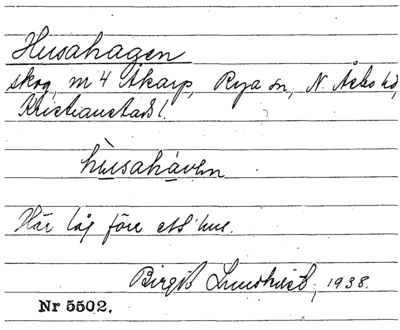 Husahagen
skog, m 4 Åkarp, Rya sn, N. Åsbo hd,
Kristianstads l.
hùsahàven
Här låg före ett hus.
Birgit Lundkvist, 1938.
Nr 5502.